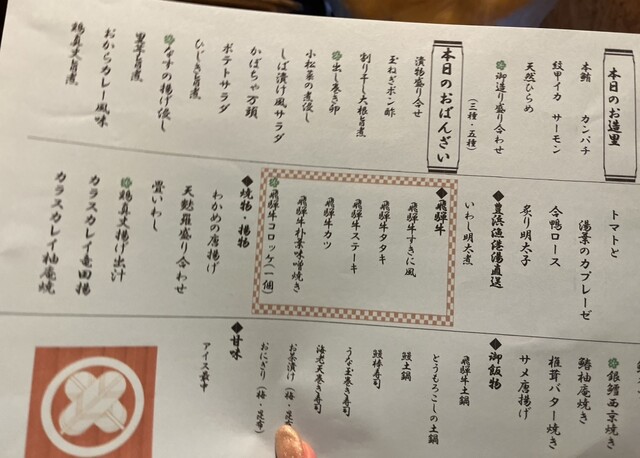 本日のお造里
本鮪　カンパチ
紋甲イカ　サーモン
天然ひらめ
御造り盛り合わせ
（三種・五種）
本日のおばんざい
漬物盛り合せ
玉ねぎポン酢
割り干し大根旨煮
出し巻き卵
小松菜の煮浸し
しば漬け風サラダ
かぼちゃ万頭
ポテトサラダ
ひじき旨煮
なすの揚げ浸し
里芋旨煮
おからカレー風味
鶏真丈旨煮
トマトと
湯葉のカプレーゼ
合鴨ロース
炙り明太子
◆豊浜漁港湯直送
いわし明太煮
◆飛騨牛
飛騨牛すきに風
飛騨牛タタキ
飛騨牛ステーキ
飛騨牛カツ
飛騨牛朴葉味噌焼き
飛騨牛コロッケ（一個）
◆焼物・揚物
わかめの唐揚げ
天麩羅盛り合わせ
畳いわし
鶏真丈揚げ出汁
カラスカレイ竜田揚
カラスカレイ柚庵焼
銀鱈西京焼き
鰆柚庵焼き
椎茸バター焼き
サメ唐揚げ
◆御飯物
飛騨牛土鍋
とうもろこしの土鍋
鰻土鍋
鰻棒寿司
うな玉巻き寿司
海老天巻き寿司
お茶漬け（梅・昆布
おにぎり（梅・昆布）
◆甘味
アイス最中